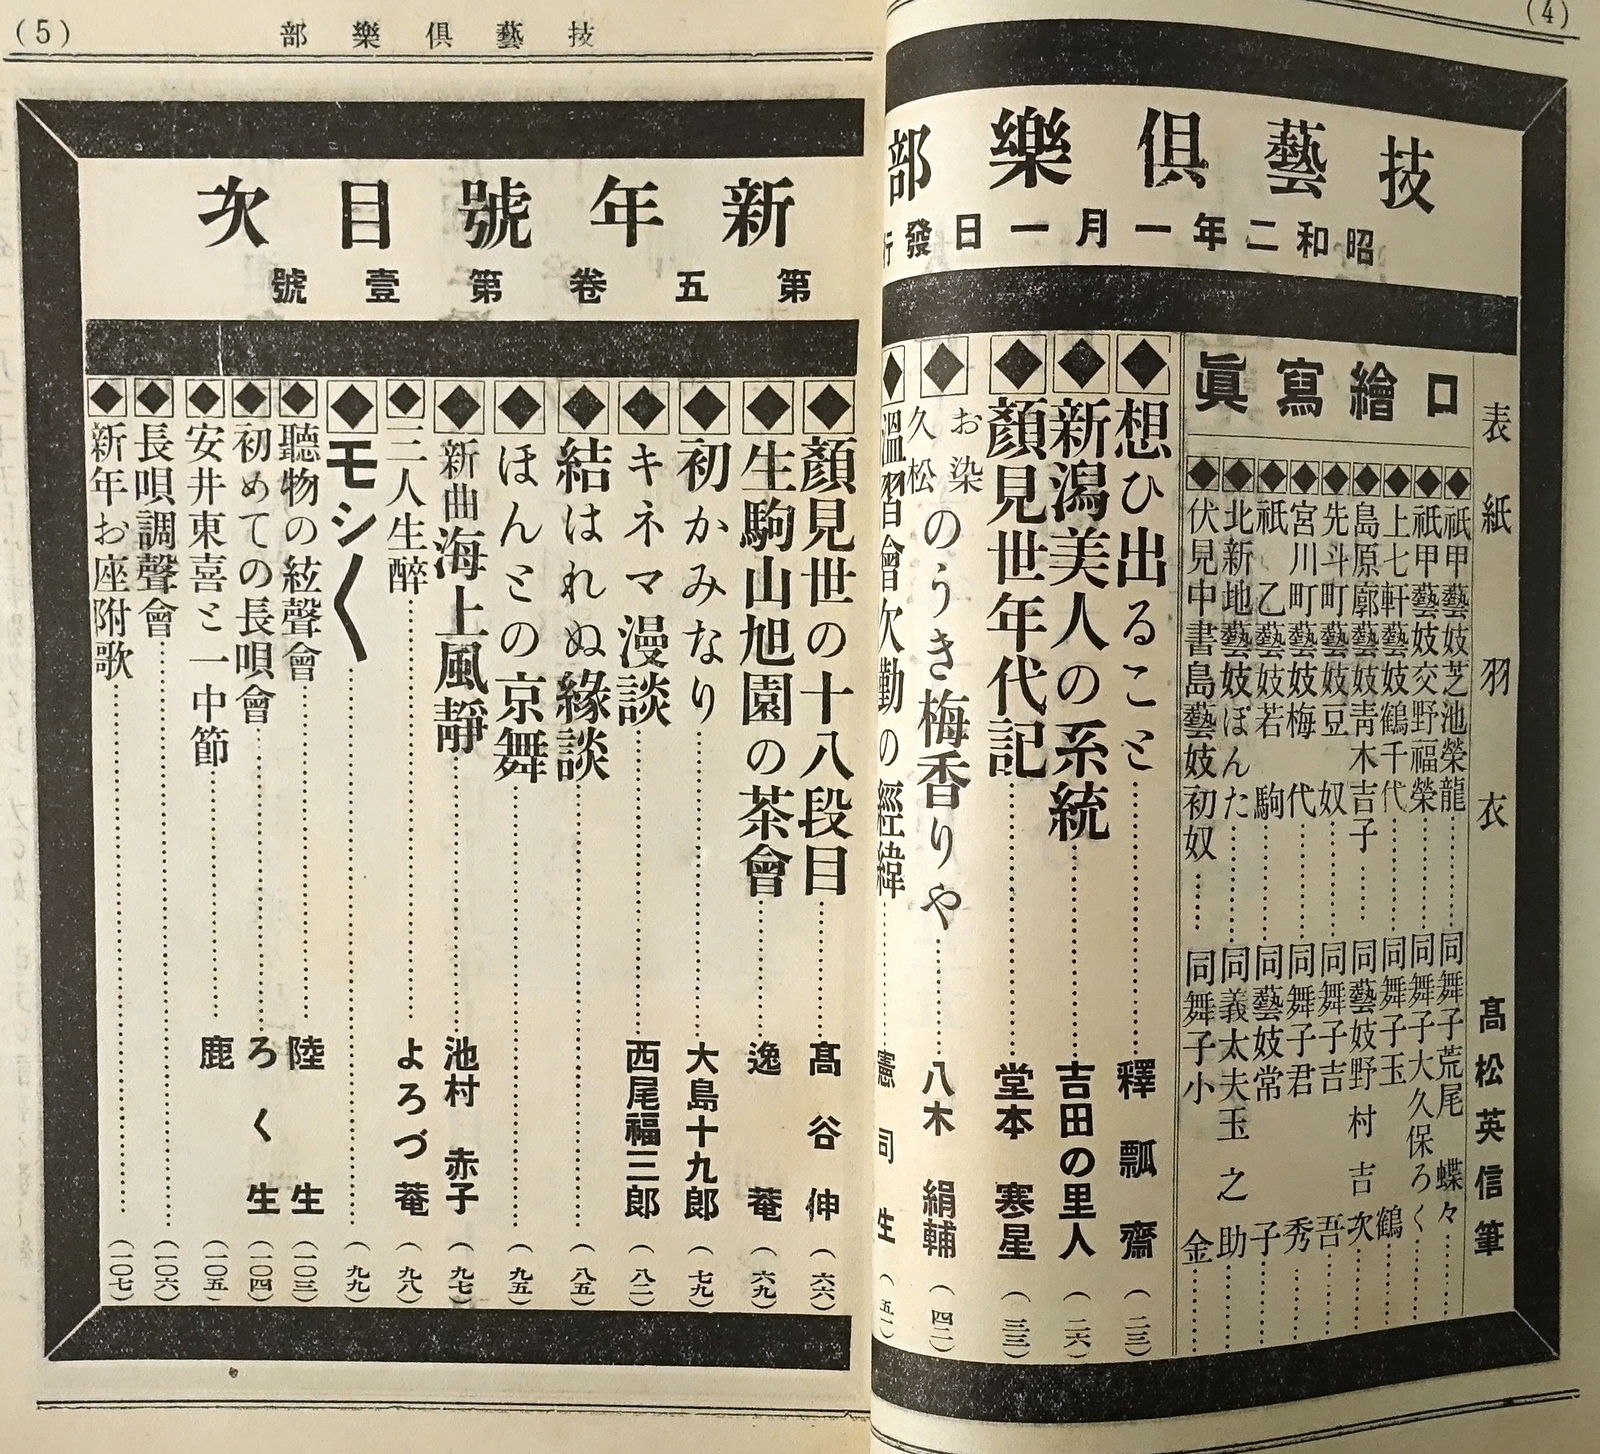 (4)
技藝倶樂部
昭和二年一月一日發行
表紙 羽衣 髙松英信筆
口繪寫眞
◆祇甲藝妓芝池榮龍……同舞子荒尾蝶々……
◆祇甲藝妓交野福榮……同舞子大久保ろく……
◆上七軒藝妓鶴千代……同舞子玉鶴……
◆島原廓藝妓靑木吉子……同藝妓野村吉次……
◆先斗町藝妓豆奴……同舞子吉吾……
◆宮川町藝妓梅代……同舞子君秀……
◆祇乙藝妓若駒……同藝妓常子……
◆北新地藝妓ぽんた……同義太夫玉之助……
◆伏見中書島藝妓初奴……同舞子小金……
◆想ひ出ること……釋瓢齋(二三)
◆新潟美人の系統……吉田の里人(二六)
◆顏見世年代記……堂本寒星(三三)
◆お染久松のうき梅香りや……八木絹輔(四二)
◆溫習會欠勤の經緯……憲司生(五一)
(5)
技藝倶樂部
新年號目次
第五卷第壹號
◆顏見世の十八段目……髙谷伸(六六)
◆生駒山旭園の茶會……逸菴(六九)
◆初かみなり……大島十九郎(七九)
◆キネマ漫談……西尾福三郎(八二)
◆結はれぬ緣談……(八五)
◆ほんとの京舞……(九五)
◆新曲海上風靜……池村赤子(九七)
◆三人生醉……よろづ菴(九八)
◆モシ〱……(九九)
◆聽物の絃聲會……陸生(一〇三)
◆初めての長唄會……ろく生(一〇四)
◆安井東喜と一中節……鹿(一〇五)
◆長唄調聲會……(一〇六)
◆新年お座附歌……(一〇七)